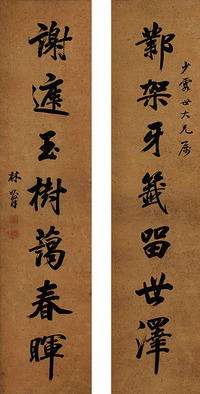 少雲世大兄屬
鄴架牙籤留世澤
謝庭玉樹藹春暉
林